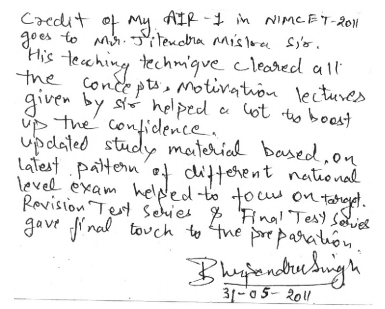 Credit of My AIR-1 in NIMCET-2011
goes to Mr. Jitendra Mishra Sir.
His teaching technique cleared all
the concepts, Motivation lectures
given by sir helped a lot to boost
up the confidence.
Updated study material based on
latest pattern of different national
level exam helped to focus on target.
Revision Test Series & Final Test Series
gave final touch to the preparation.
Bhupendra Singh
31-05-2011